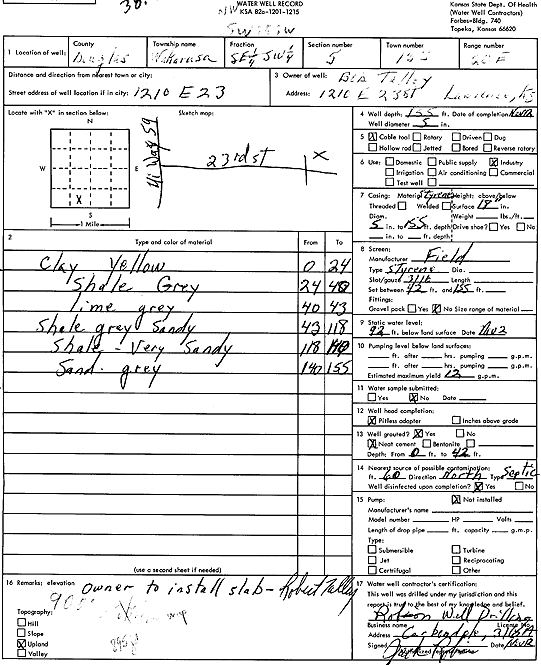 WATER WELL RECORD
KSA 82a-1201-1215
Kansas State Dept. Of Health
(Water Well Contractors)
Forbes-Bldg. 740
Topeka, Kansas 66620
1 Location of well:
County
Douglas
Township name
Wakarusa
Fraction
SE¼ SW¼
Section number
5
Town number
Range number
20 E
Distance and direction from nearest town or city:
Street address of well location if in city: 1210 E 23
3 Owner of well: Bob Talley
Address: 1210 E 23st Lawrence, KS
Locate with "X" in section below:
Sketch map:
N
W
E
S
X
1 Mile
Hi Way 59
23rd st
X
2
Type and color of material
From
To
Clay Yellow 0 24
Shale Grey 24 40
lime grey 40 43
Shale grey Sandy 43 118
Shale - Very Sandy 118 140
Sand grey 140 155
(use a second sheet if needed)
4 Well depth: 155 ft. Date of completion Nov 2
Well diameter 5 in.
5 X Cable tool Rotary Driven Dug
Hollow rod Jetted Bored Reverse rotary
6 Use: Domestic Public supply X Industry
Irrigation Air conditioning Commercial
Test well
7 Casing: Material Styrene Height: above/below
Threaded Welded Surface 18" in.
Diam. Weight lbs./ft.
5 in. to 155 ft. depth Drive shoe? Yes No
in. to ft. depth
8 Screen:
Manufacturer Field
Type Styrene Dia.
Slot/gauze 3/16 Length
Set between 42 ft. and 155 ft.
Fittings:
Gravel pack Yes X No Size range of material
9 Static water level:
92 ft. below land surface Date Nov 2
10 Pumping level below land surfaces:
ft. after hrs. pumping g.p.m.
ft. after hrs. pumping g.p.m.
Estimated maximum yield 12 g.p.m.
11 Water sample submitted:
Yes X No Date
12 Well head completion:
X Pitless adapter Inches above grade
13 Well grouted? X Yes No
X Neat cement Bentonite
Depth: From 0 ft. to 42 ft.
14 Nearest source of possible contamination:
ft. 60 Direction North Type Septic
Well disinfected upon completion? X Yes No
15 Pump: X Not installed
Manufacturer's name
Model number HP Volts
Length of drop pipe ft. capacity g.m.p.
Type:
Submersible Turbine
Jet Reciprocating
Certrifugal Other
16 Remarks: elevation
Owner to install slab - Robert Talley
Topography:
Hill
Slope
X Upland
Valley
17 Water well contractor's certification:
This well was drilled under my jurisdiction and this
report is true to the best of my knowledge and belief.
Well Drilling
Business name License No.
Address Carbondale,
Signed Date